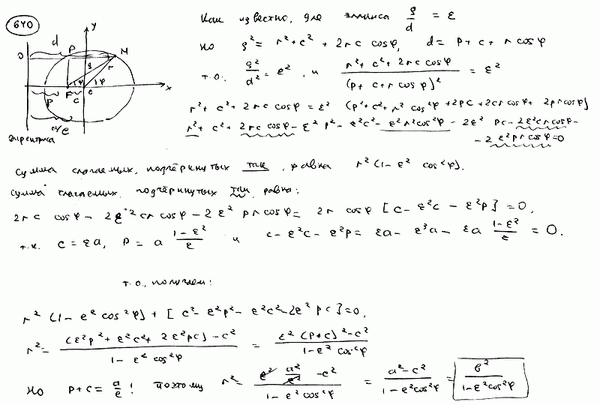 640
y
d
D
P
M
ρ
r
φ
φ
x
P
F
c
0
a/e
директриса
Как известно, для эллипса ρ/d = ε
но ρ² = r² + c² + 2rc cosφ, d = p + c + r cosφ
т.о. ρ²/d² = ε², и (r² + c² + 2rc cosφ)/(p + c + r cosφ)² = ε²
r² + c² + 2rc cosφ = ε² (p² + c² + r² cos²φ + 2pc + 2cr cosφ + 2pr cosφ)
r² + c² + 2rc cosφ - ε² p² - ε²c² - ε² r² cos²φ - 2ε² pc - 2ε²cr cosφ -
- 2ε² pr cosφ = 0
Сумма слагаемых, подчёркнутых так, равна r² (1 - ε² cos²φ).
Сумма слагаемых, подчёркнутых так, равна:
2rc cosφ - 2ε² cr cosφ - 2ε² pr cosφ = 2r cosφ [c - ε²c - ε²p] = 0,
т.к. c = εa, p = a (1-ε²)/ε и c - ε²c - ε²p = εa - ε³a - εa (1-ε²)/ε = 0.
т.о. получаем:
r² (1 - ε² cos²φ) + [c² - ε²p² - ε²c² - 2ε² pc] = 0,
r² = ((ε²p² + ε²c² + 2ε²pc) - c²)/(1 - ε² cos²φ) = (ε² (p+c)² - c²)/(1 - ε² cos²φ)
Но p + c = a/ε ! Поэтому r² = (ε² a²/ε² - c²)/(1 - ε² cos²φ) = (a² - c²)/(1 - ε² cos²φ) = b²/(1 - ε² cos²φ)